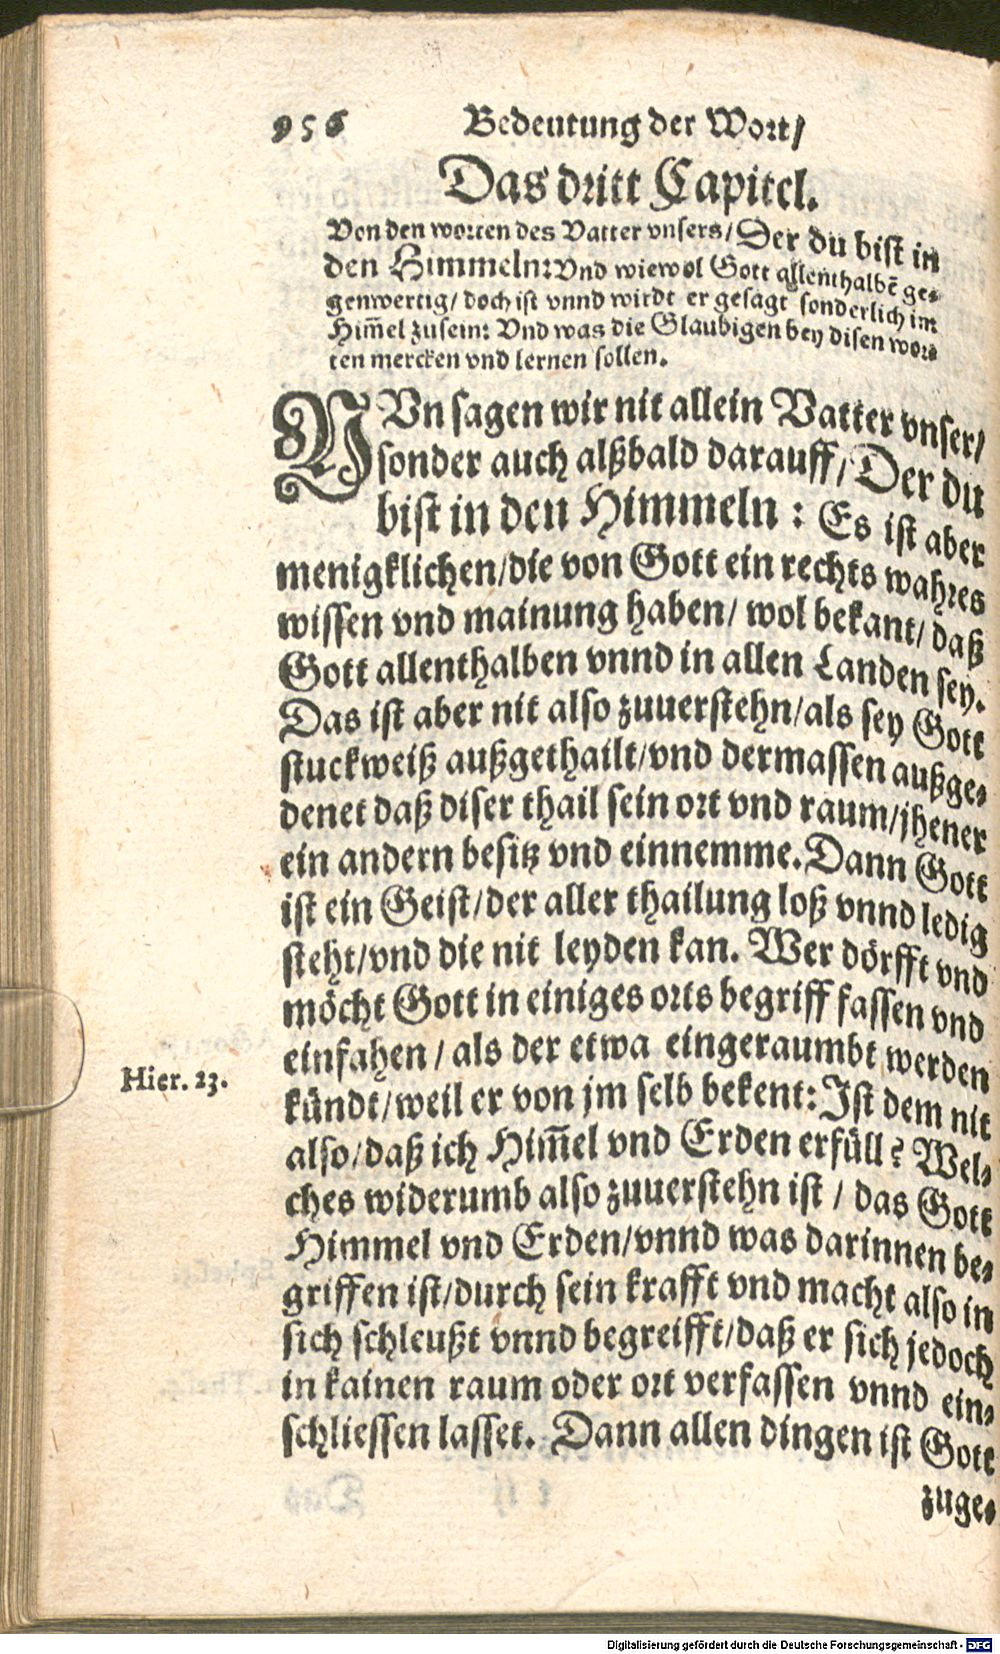 956 Bedeutung der Wort/
Das dritt Capitel.
Von den worten des Vatter vnsers/ Der du bist in
den Himmeln: Vnd wiewol Gott allenthalbē ge-
genwertig/ doch ist vnnd wirdt er gesagt sonderlich im
Him̄el zusein: Vnd was die Glaubigen bey disen wor-
ten mercken vnd lernen sollen.
NVn sagen wir nit allein Vatter vnser/
sonder auch alßbald darauff/ Der du
bist in den Himmeln : Es ist aber
menigklichen/die von Gott ein rechts wahres
wissen vnd mainung haben/ wol bekant/ daß
Gott allenthalben vnnd in allen Landen sey.
Das ist aber nit also zuuerstehn/als sey Gott
stuckweiß außgethailt/vnd dermassen außge-
denet daß diser thail sein ort vnd raum/jhener
ein andern besitz vnd einnemme. Dann Gott
ist ein Geist/der aller thailung loß vnnd ledig
steht/vnd die nit leyden kan. Wer dörfft vnd
möcht Gott in einiges orts begriff fassen vnd
einfahen / als der etwa eingeraumbt werden
Hier. 23.
kündt/weil er von jm selb bekent: Ist dem nit
also/daß ich Him̄el vnd Erden erfüll? Wel-
ches widerumb also zuuerstehn ist / das Gott
Himmel vnd Erden/vnnd was darinnen be-
griffen ist/durch sein krafft vnd macht also in
sich schleußt vnnd begreifft/daß er sich jedoch
in kainen raum oder ort verfassen vnnd ein-
schliessen lasset. Dann allen dingen ist Gott
zuge-
Digitalisierung gefördert durch die Deutsche Forschungsgemeinschaft - DFG